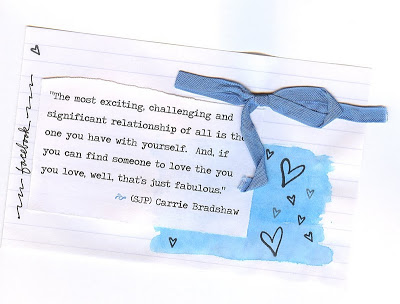 facebook
"The most exciting, challenging and
significant relationship of all is the
one you have with yourself. And, if
you can find someone to love the you
you love, well, that's just fabulous."
(SJP) Carrie Bradshaw